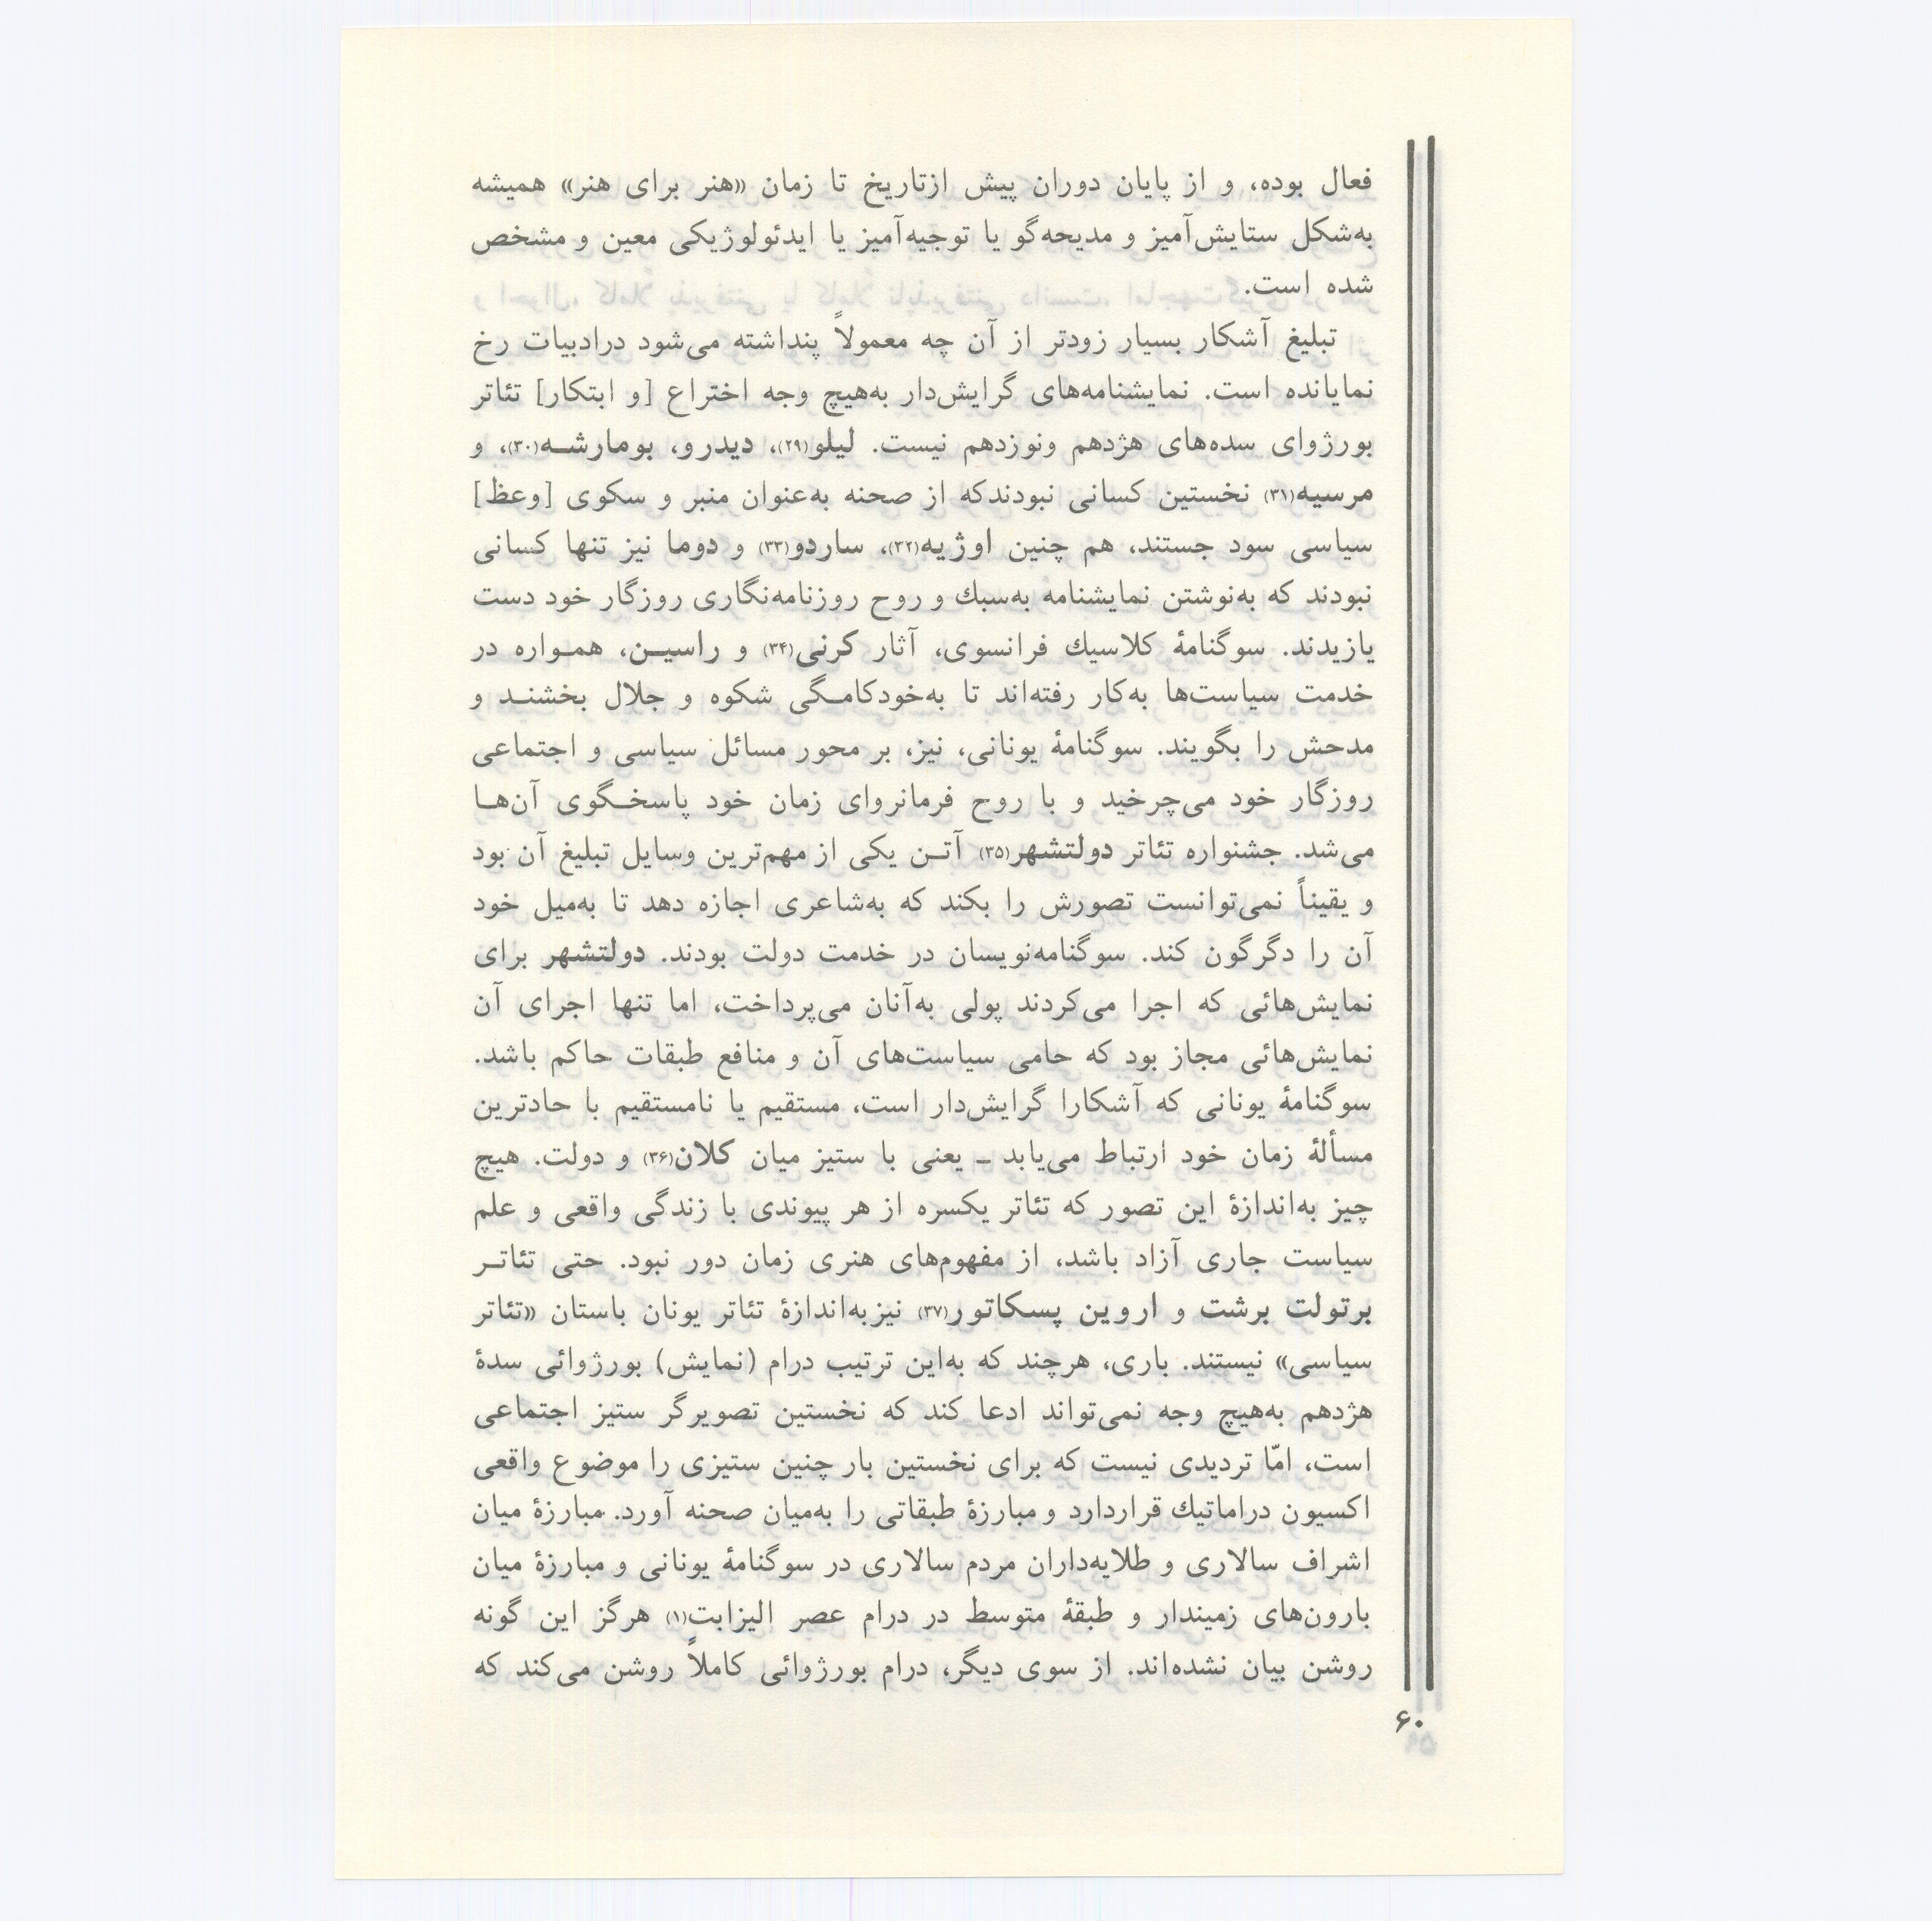 فعال بوده، و از پایان دوران پیش ازتاریخ تا زمان «هنر برای هنر» همیشه
به‌شکل ستایش‌آمیز و مدیحه‌گو یا توجیه‌آمیز یا ایدئولوژیکی معین و مشخص
شده است.
تبلیغ آشکار بسیار زودتر از آن چه معمولاً پنداشته می‌شود درادبیات رخ
نمایانده است. نمایشنامه‌های گرایش‌دار به‌هیچ وجه اختراع [و ابتکار] تئاتر
بورژوای سده‌های هژدهم ونوزدهم نیست. لیلو(۲۹)، دیدرو، بومارشـه(۳۰)، و
مرسیه(۳۱) نخستین کسانی نبودندکه از صحنه به‌عنوان منبر و سکوی [وعظ]
سیاسی سود جستند، هم چنین اوژیه(۳۲)، ساردو(۳۳) و دوما نیز تنها کسانی
نبودند که به‌نوشتن نمایشنامه به‌سبك و روح روزنامه‌نگاری روزگار خود دست
یازیدند. سوگنامهٔ کلاسیك فرانسوی، آثار کرنی(۳۴) و راسیـن، همـواره در
خدمت سیاست‌ها به‌کار رفته‌اند تا به‌خودکامـگی شکوه و جلال بخشنـد و
مدحش را بگویند. سوگنامهٔ یونانی، نیز، بر محور مسائل سیاسی و اجتماعی
روزگار خود می‌چرخید و با روح فرمانروای زمان خود پاسخـگوی آن‌هـا
می‌شد. جشنواره تئاتر دولتشهر(۳۵) آتـن یکی از مهم‌ترین وسایل تبلیغ آن بود
و یقیناً نمی‌توانست تصورش را بکند که به‌شاعری اجازه دهد تا به‌میل خود
آن را دگرگون کند. سوگنامه‌نویسان در خدمت دولت بودند. دولتشهر برای
نمایش‌هائی که اجرا می‌کردند پولی به‌آنان می‌پرداخت، اما تنها اجرای آن
نمایش‌هائی مجاز بود که حامی سیاست‌های آن و منافع طبقات حاکم باشد.
سوگنامهٔ یونانی که آشکارا گرایش‌دار است، مستقیم یا نامستقیم با حادترین
مسألهٔ زمان خود ارتباط می‌یابد ـ یعنی با ستیز میان کلان(۳۶) و دولت. هیچ
چیز به‌اندازهٔ این تصور که تئاتر یکسره از هر پیوندی با زندگی واقعی و علم
سیاست جاری آزاد باشد، از مفهوم‌های هنری زمان دور نبود. حتی تئاتـر
برتولت برشت و اروین پسکاتور(۳۷) نیزبه‌اندازهٔ تئاتر یونان باستان «تئاتر
سیاسی» نیستند. باری، هرچند که به‌این ترتیب درام (نمایش) بورژوائی سدهٔ
هژدهم به‌هیچ وجه نمی‌تواند ادعا کند که نخستین تصویرگر ستیز اجتماعی
است، امّا تردیدی نیست که برای نخستین بار چنین ستیزی را موضوع واقعی
اکسیون دراماتیك قراردارد و مبارزهٔ طبقاتی را به‌میان صحنه آورد. مبارزهٔ میان
اشراف سالاری و طلایه‌داران مردم سالاری در سوگنامهٔ یونانی و مبارزهٔ میان
بارون‌های زمیندار و طبقهٔ متوسط در درام عصر الیزابت(۱) هرگز این گونه
روشن بیان نشده‌اند. از سوی دیگر، درام بورژوائی کاملاً روشن می‌کند که
۶۰